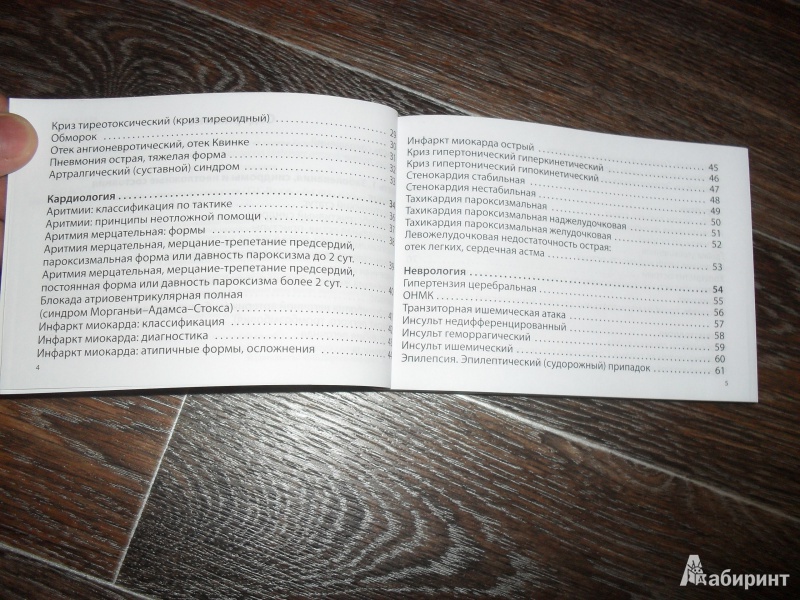 Криз тиреотоксический (криз тиреоидный)
Обморок
Отек ангионевротический, отек Квинке
Пневмония острая, тяжелая форма
Артралгический (суставной) синдром
Кардиология
Аритмии: классификация по тактике
Аритмии: принципы неотложной помощи
Аритмия мерцательная: формы
Аритмия мерцательная, мерцание-трепетание предсердий,
пароксизмальная форма или давность пароксизма до 2 сут.
Аритмия мерцательная, мерцание-трепетание предсердий,
постоянная форма или давность пароксизма более 2 сут.
Блокада атриовентрикулярная полная
(синдром Морганьи–Адамса–Стокса)
Инфаркт миокарда: классификация
Инфаркт миокарда: диагностика
Инфаркт миокарда: атипичные формы, осложнения
4
Инфаркт миокарда острый 45
Криз гипертонический гиперкинетический 46
Криз гипертонический гипокинетический 47
Стенокардия стабильная 48
Стенокардия нестабильная 49
Тахикардия пароксизмальная 50
Тахикардия пароксизмальная наджелудочковая 51
Тахикардия пароксизмальная желудочковая 52
Левожелудочковая недостаточность острая:
отек легких, сердечная астма 53
Неврология 54
Гипертензия церебральная 55
ОНМК 56
Транзиторная ишемическая атака 57
Инсульт недифференцированный 58
Инсульт геморрагический 59
Инсульт ишемический 60
Эпилепсия. Эпилептический (судорожный) припадок 61
5
Лабиринт